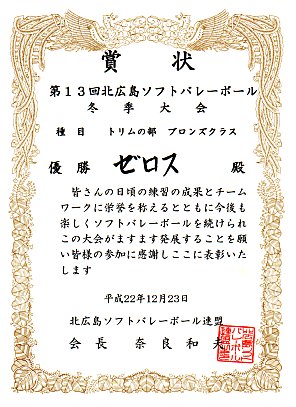 賞状
第13回北広島ソフトバレーボール
冬季大会
種目 トリムの部 ブロンズクラス
優勝 ゼロス 殿
皆さんの日頃の練習の成果とチーム
ワークに栄誉を称えるとともに今後も
楽しくソフトバレーボールを続けられ
この大会がますます発展することを願
い皆様の参加に感謝しここに表彰いた
します
平成22年12月23日
北広島ソフトバレーボール連盟
会長 奈良和夫